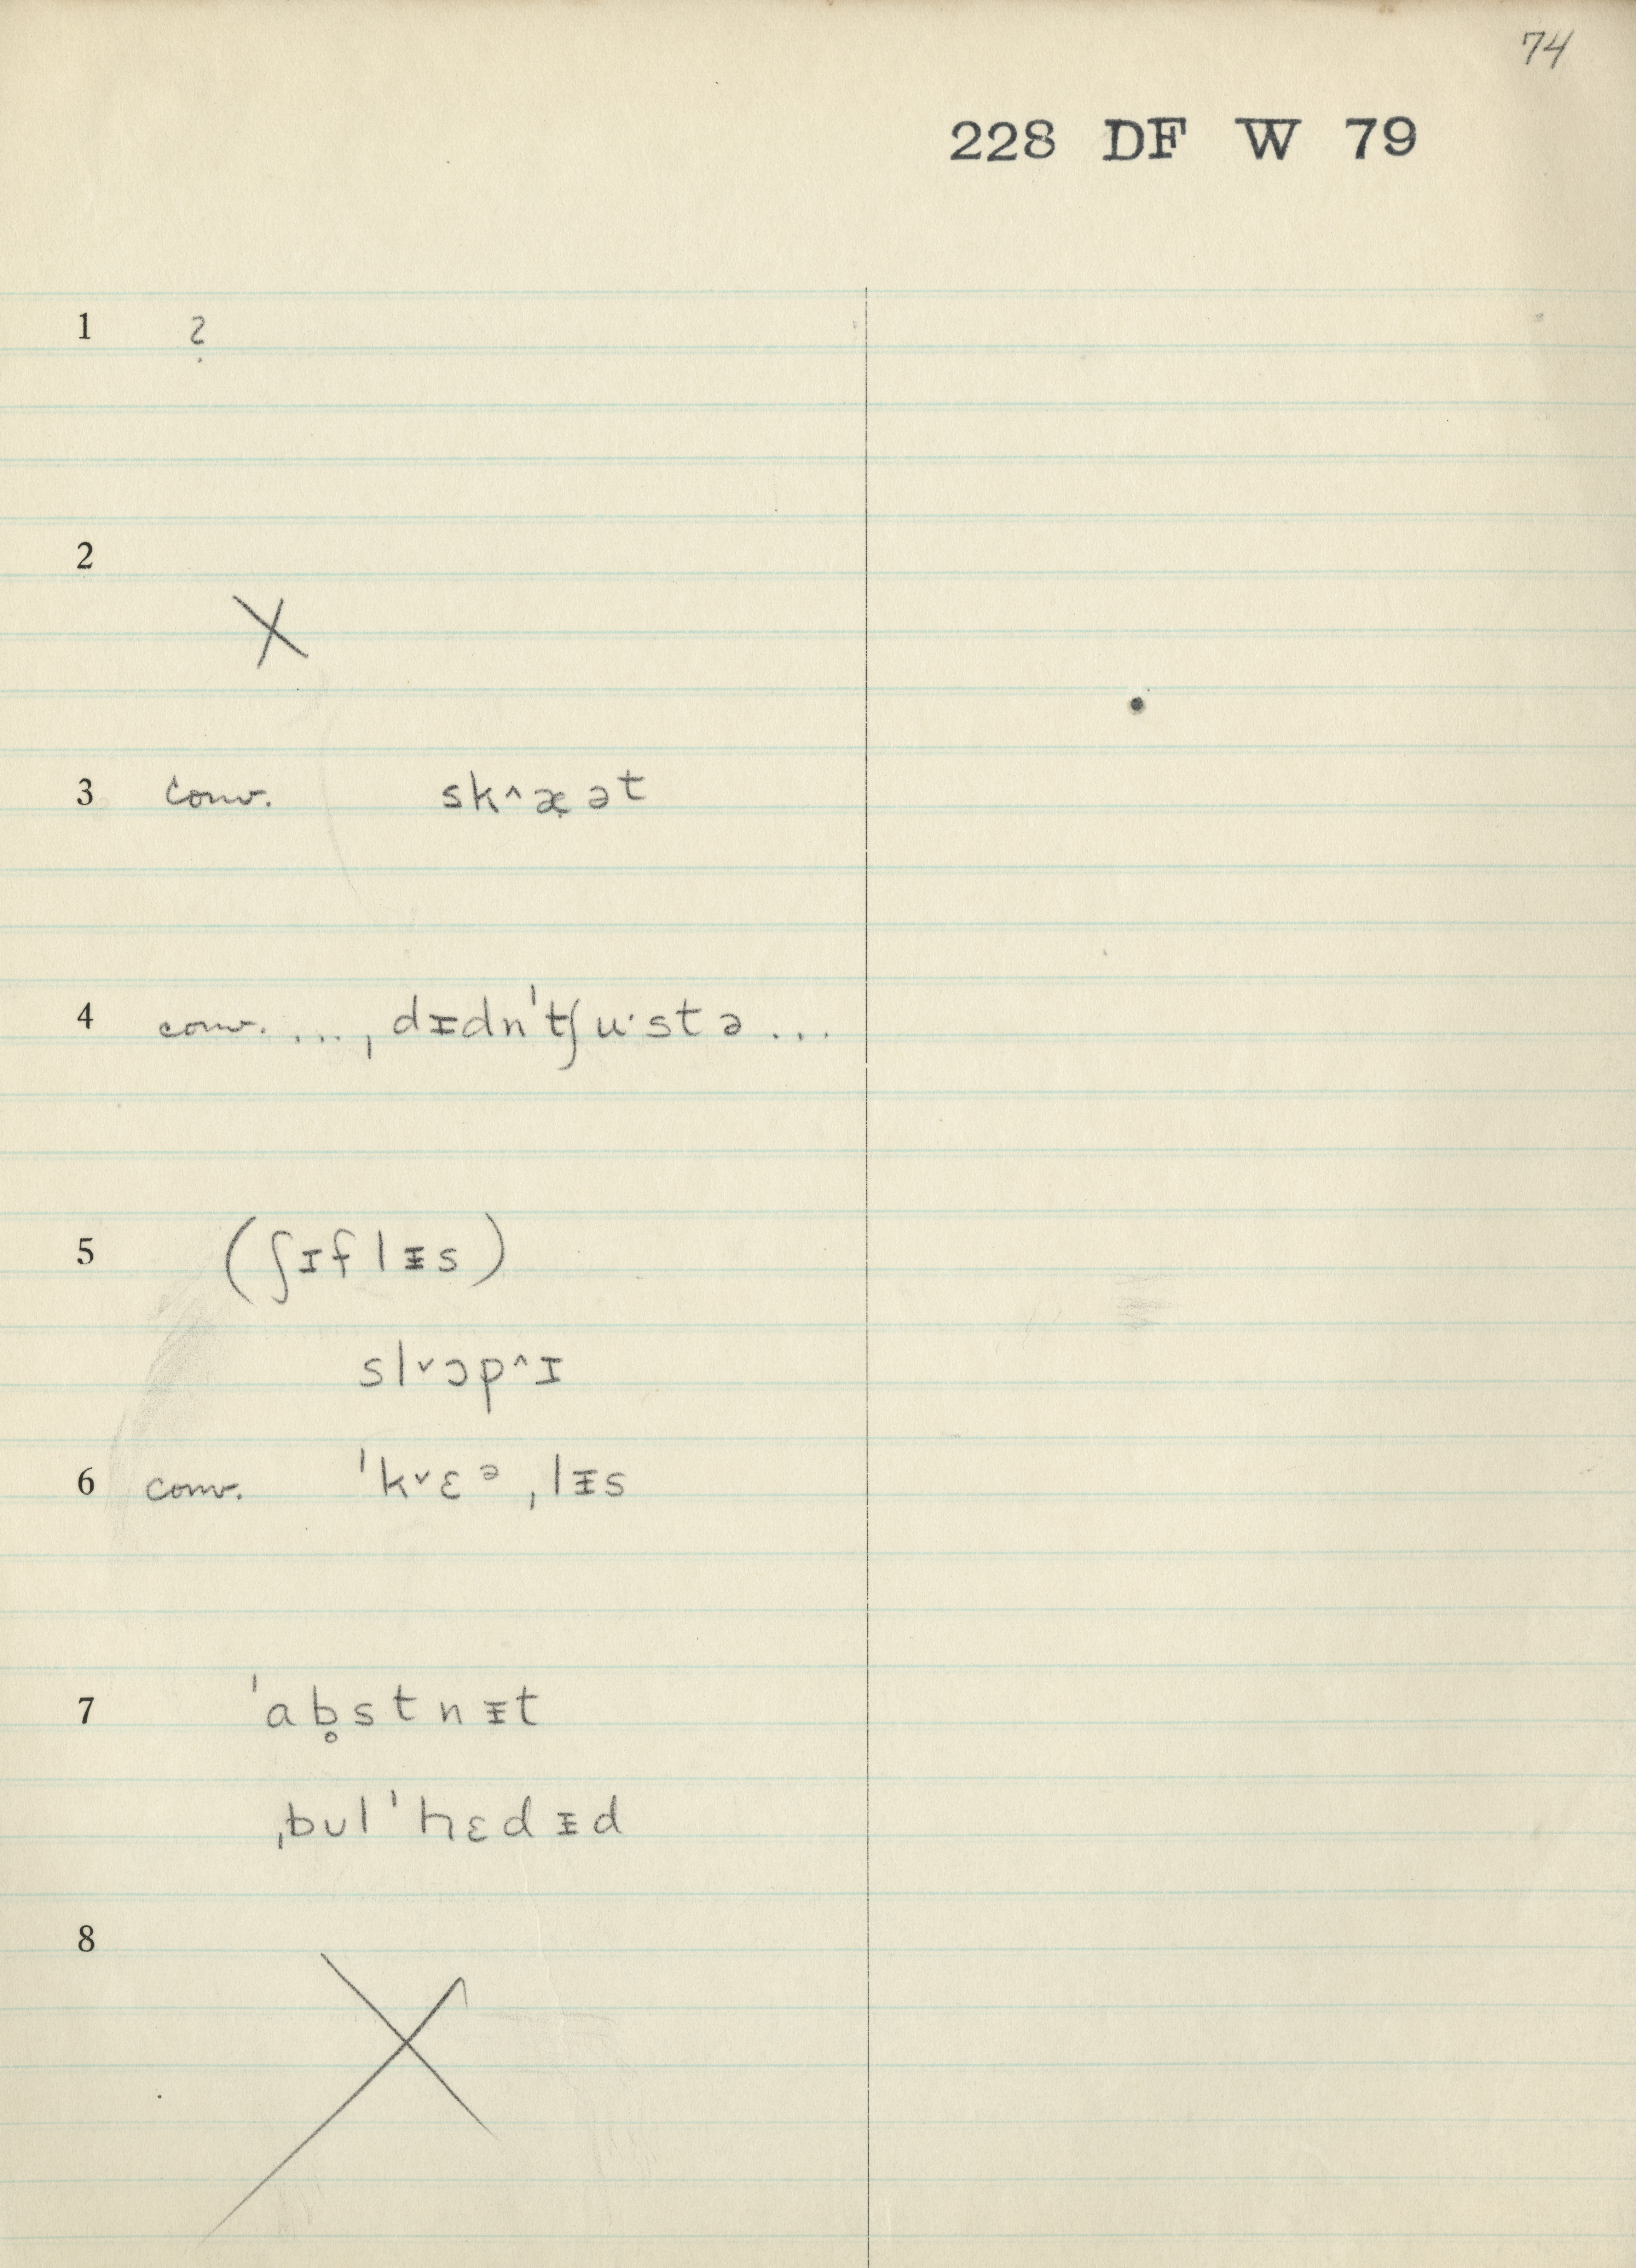 74
228 DF W 79
1 ?
2 X
3 conv. sk˄æ̣ət
4 conv. ..., dᵻdn'tʃu·stə...
5 (ʃɪflᵻs)
sl˅ɔp˄ɪ
6 conv. ˈk˅ɛᵊˌlᵻs
7 ˈab̥stnᵻt
ˌbʊlˈhɛdᵻd
8 X